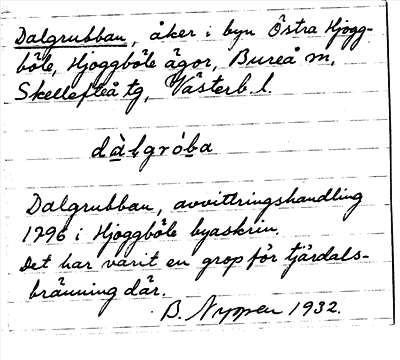 Dalgrubban, åker i byn Östra Hjogg-
böle, Hjoggböle ägor, Bureå sn,
Skellefteå tg, Västerb. l.
dàlgróba
Dalgrubban, avvittringshandling
1796 i Hjoggböle byaskrin.
Det har varit en grop för tjärdals-
bränning där.
B. Nyppen 1932.